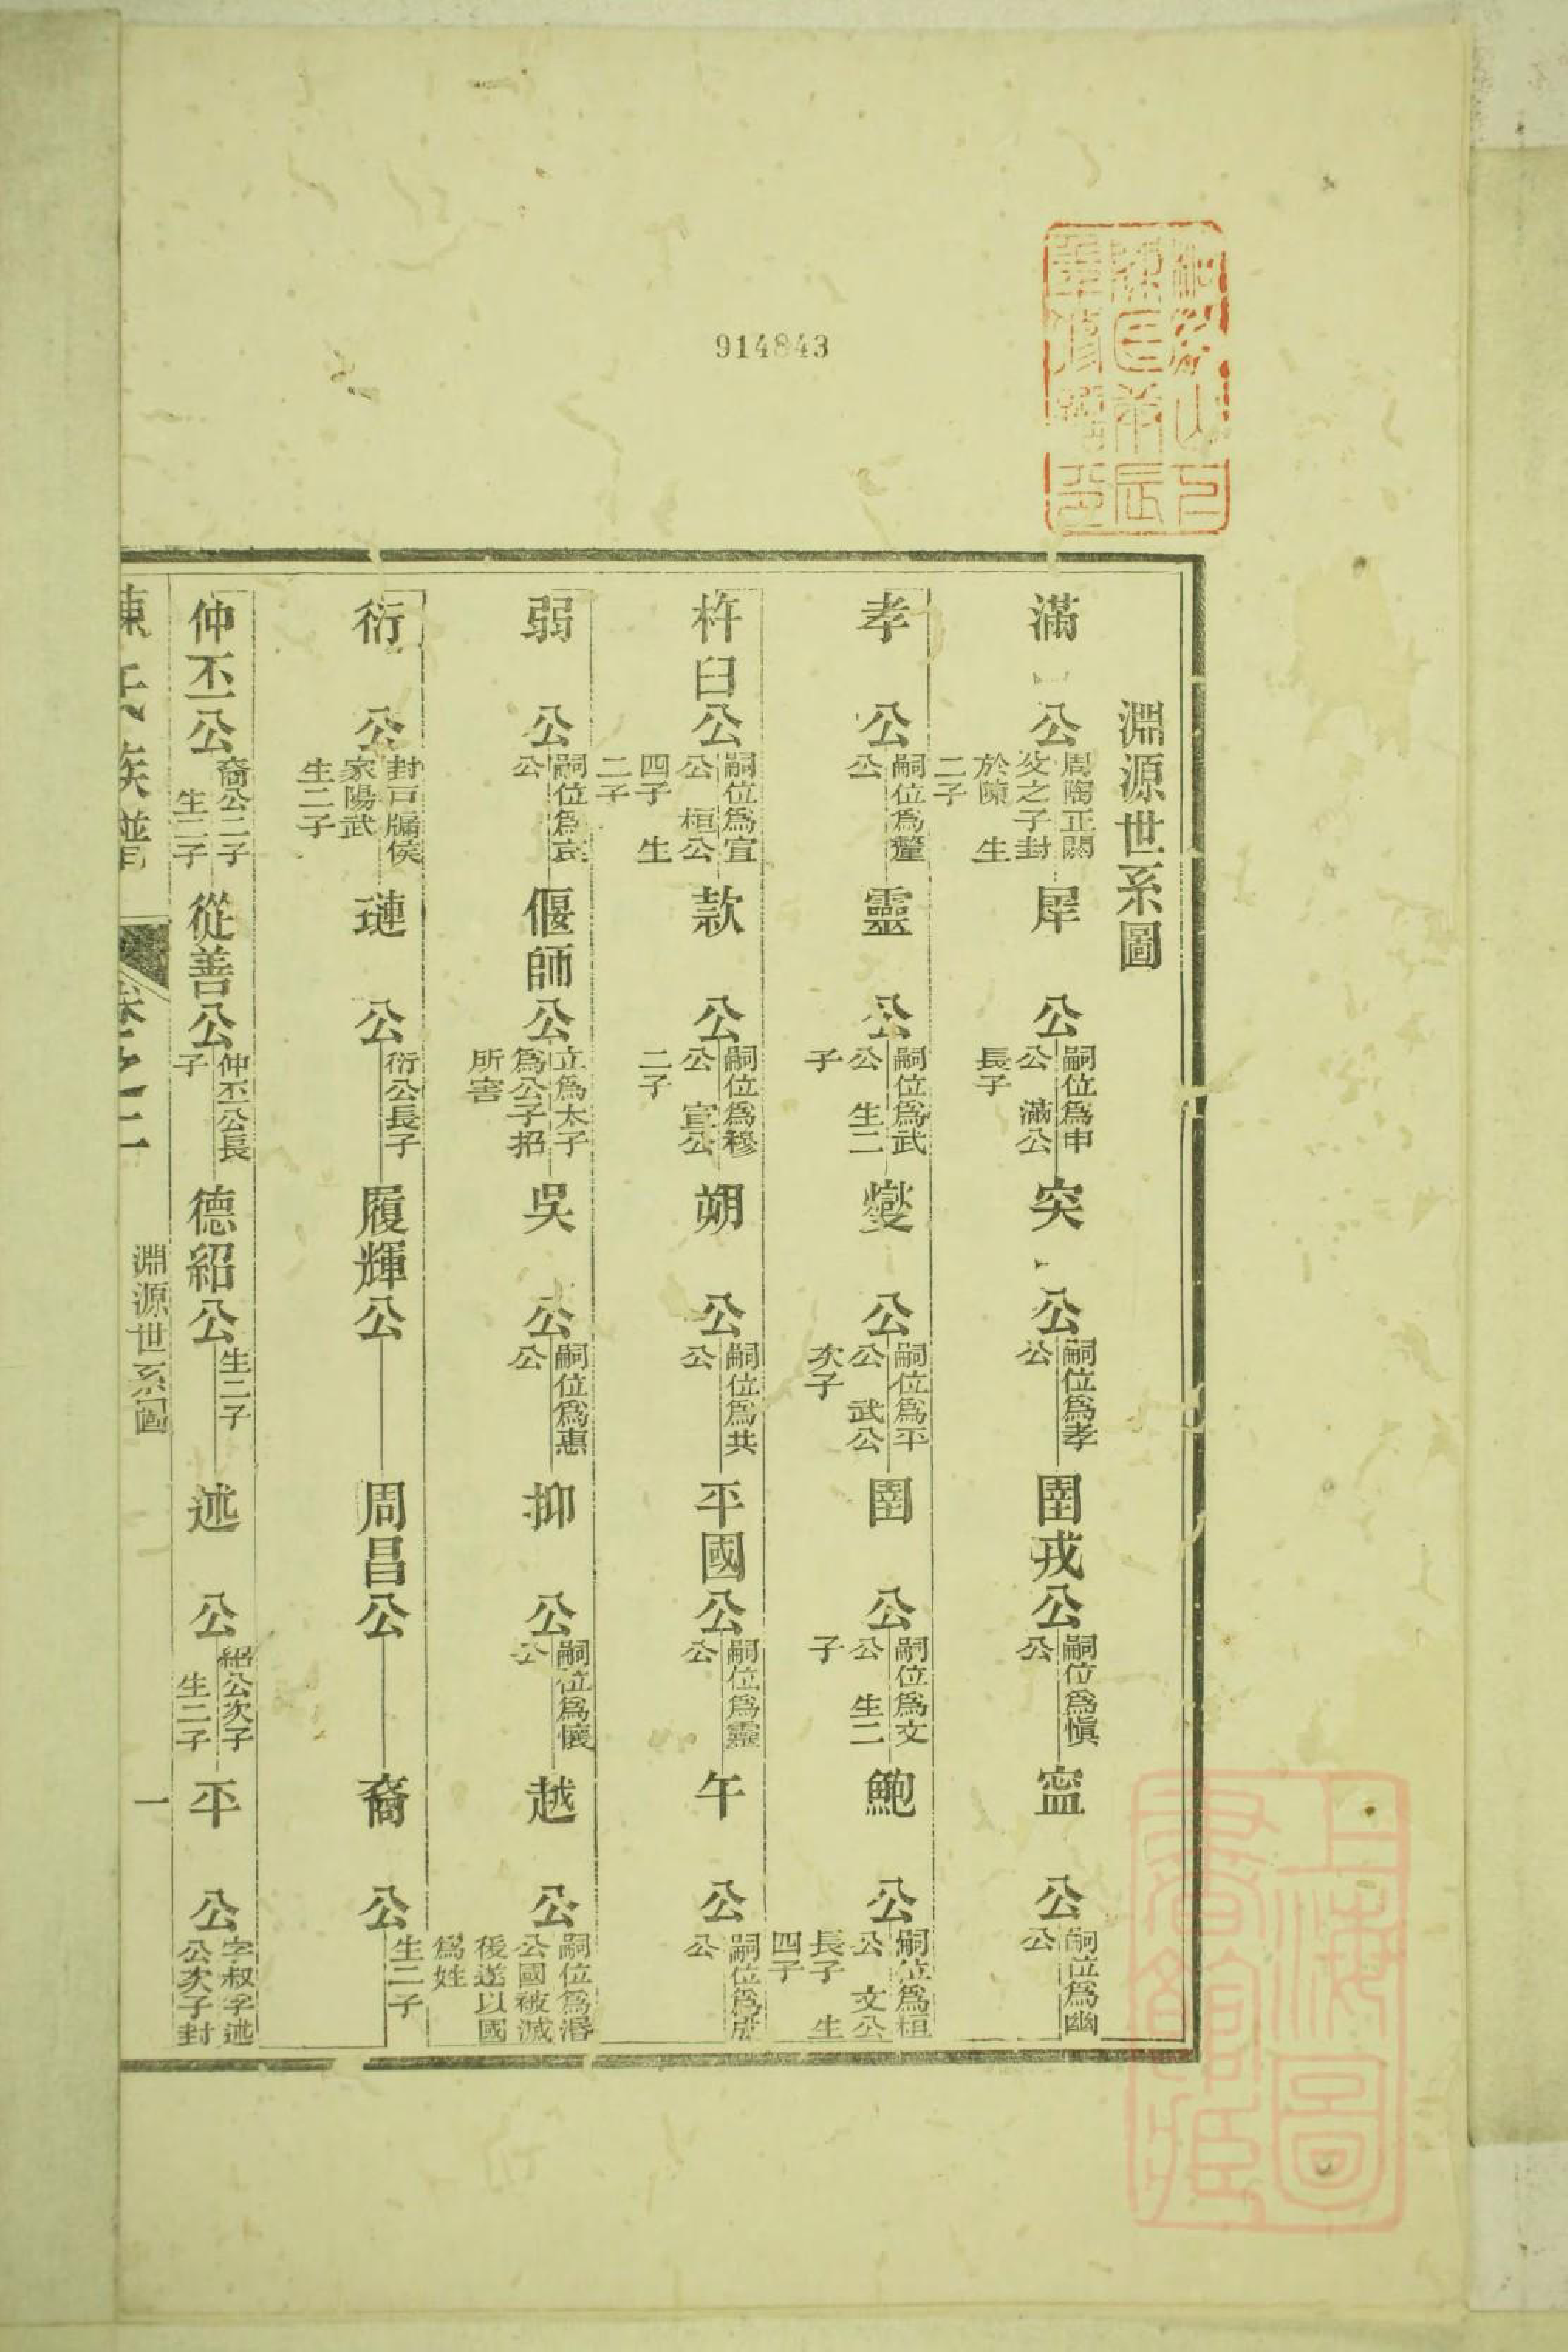 914843
淵源世系圖
滿公 周陶正閼父之子封於陳 生二子 犀公 嗣位為申公 滿公長子 突公 嗣位為孝公 圉戎公 嗣位為慎公 寍公 嗣位為幽公
孝公 嗣位為釐公 靈公 嗣位為武公 生二子 燮公 嗣位為平公 武公次子 圉公 嗣位為文公 生二子 鮑公 嗣位為桓公 文公長子 生四子
杵臼公 嗣位為宣公 桓公四子 生二子 款公 嗣位為穆公 宣公二子 朔公 嗣位為共公 平國公 嗣位為靈公 午公 嗣位為成公
弱公 嗣位為哀公 偃師公 立為太子為公子招所害 吳公 嗣位為惠公 抑公 嗣位為懷公 越公 嗣位為湣公國被滅後遂以國為姓
衍公 封戸牖侯家陽武生二子 璉公 衍公長子 履輝公 周昌公 裔公 生二子
仲丕公 裔公二子 生二子 從善公 仲丕公長子 德紹公 生二子 述公 紹公次子 生二子 平公 字叔孚述公次子封
陳氏族譜 卷之二 淵源世系圖 一
上海圖書館藏